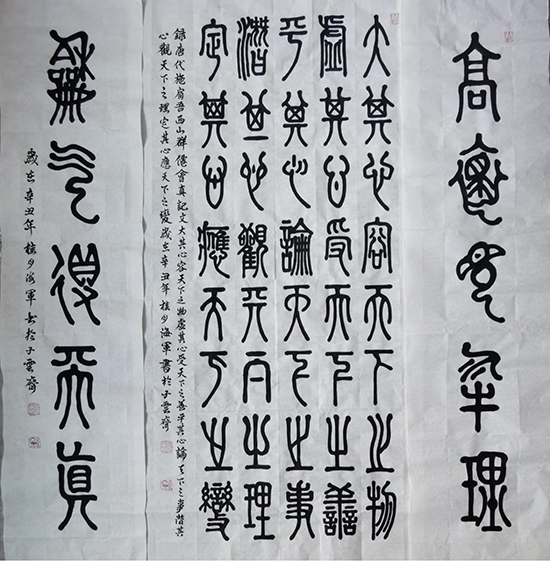 高懷見物理
大其心容天下之物
虛其心受天下之善
平其心論天下之事
潛其心觀天下之理
定其心應天下之變
錄唐代施肩吾西山群僊會真記文大其心容天下之物虛其心受天下之善平其心論天下之事潛其
心觀天下之理定其心應天下之變歲在辛丑年桂月海軍書於子雲齋
龢气得天真
歲在辛丑年桂月海軍書於子雲齋